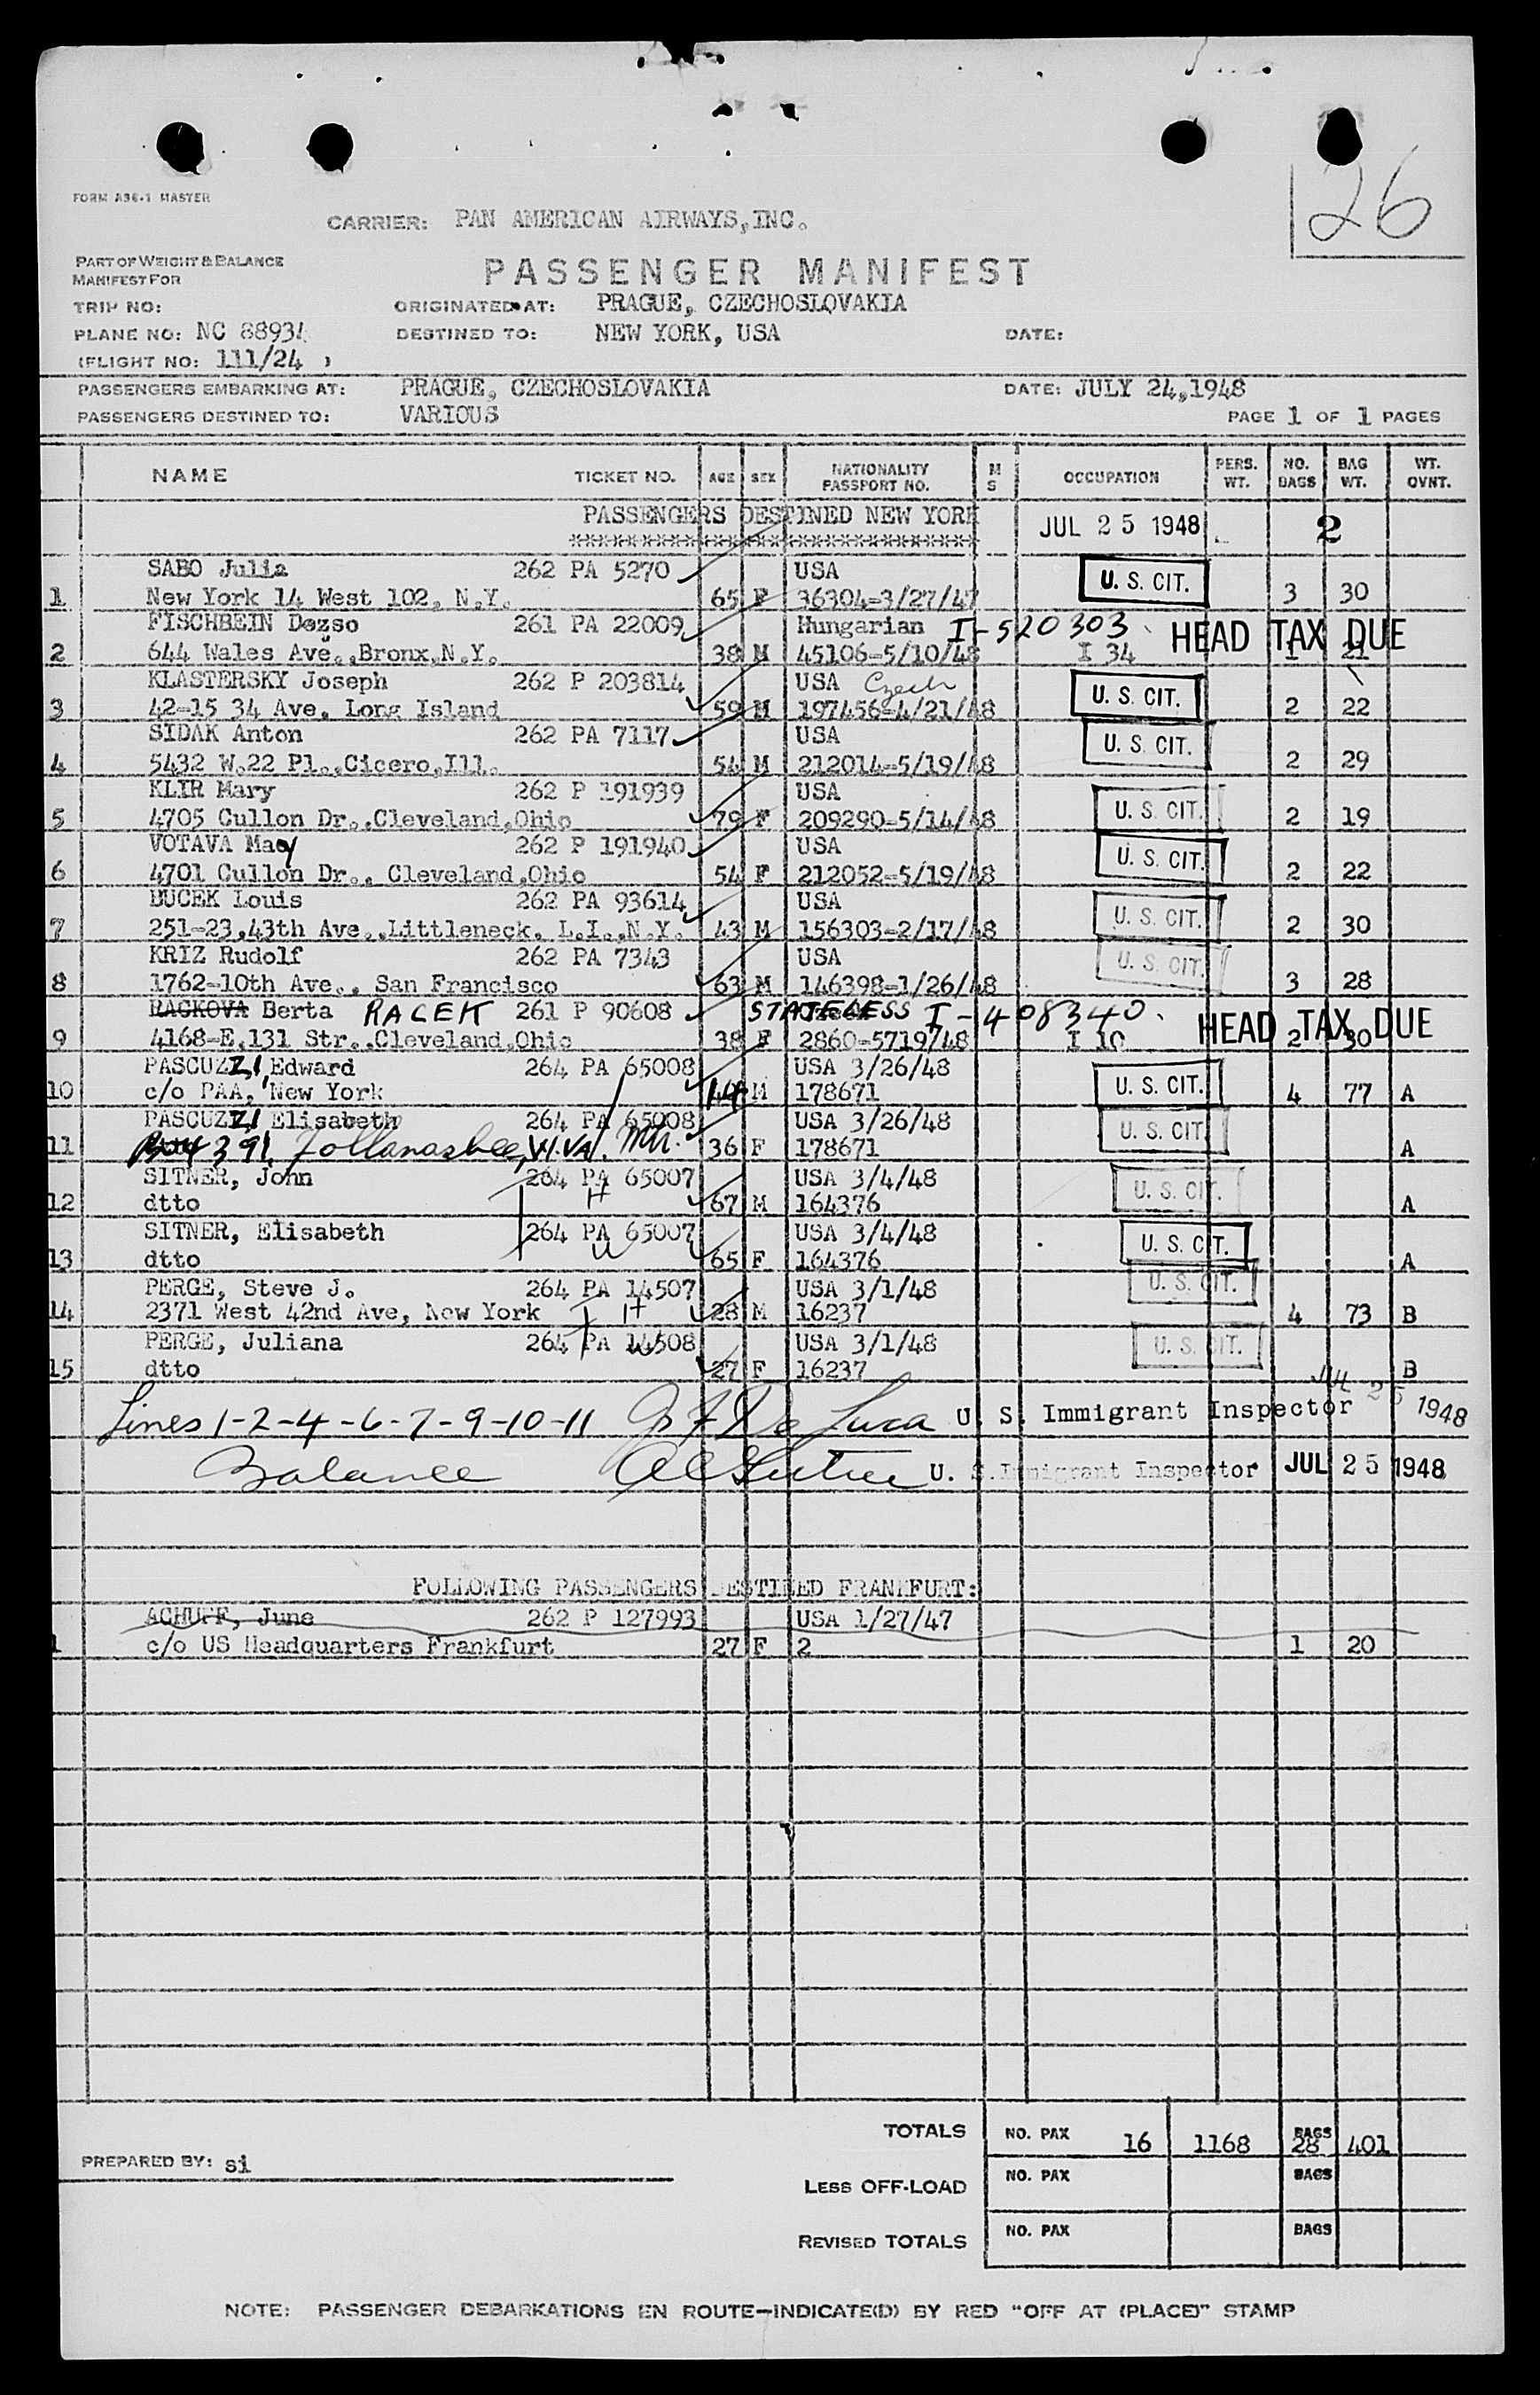 26
FORM A36-1 MASTER
CARRIER: PAN AMERICAN AIRWAYS, INC.
PART OF WEIGHT & BALANCE
MANIFEST FOR
PASSENGER MANIFEST
TRIP NO:
ORIGINATED AT: PRAGUE, CZECHOSLOVAKIA
PLANE NO: NC 88934
DESTINED TO: NEW YORK, USA
DATE:
(FLIGHT NO: 111/24 )
PASSENGERS EMBARKING AT: PRAGUE, CZECHOSLOVAKIA DATE: JULY 24,1948
PASSENGERS DESTINED TO: VARIOUS PAGE 1 OF 1 PAGES
NAME TICKET NO. AGE SEX NATIONALITY PASSPORT NO. M S OCCUPATION PERS. WT. NO. BAGS BAG WT. WT. OVNT.
PASSENGERS DESTINED NEW YORK JUL 25 1948 2
SABO Julia 262 PA 5270 USA U. S. CIT.
1 New York 14 West 102, N.Y. 65 F 36304-3/27/47 3 30
FISCHBEIN Dezso 261 PA 22009 Hungarian I-520303 HEAD TAX DUE
2 644 Wales Ave.,Bronx,N.Y. 38 M 45106-5/10/48 I 34 1 21
KLASTERSKY Joseph 262 P 203814 USA Czech U. S. CIT.
3 42-15 34 Ave. Long Island 59 M 197456-4/21/48 2 22
SIDAK Anton 262 PA 7117 USA U. S. CIT.
4 5432 W.22 Pl.,Cicero,Ill. 54 M 212014-5/19/48 2 29
KLIR Mary 262 P 191939 USA U. S. CIT.
5 4705 Cullon Dr.,Cleveland,Ohio 79 F 209290-5/14/48 2 19
VOTAVA Mary 262 P 191940 USA U. S. CIT.
6 4701 Cullon Dr., Cleveland,Ohio 54 F 212052-5/19/48 2 22
DUCEK Louis 262 PA 93614 USA U. S. CIT.
7 251-23,43th Ave.,Littleneck, L.I.,N.Y. 43 M 156303-2/17/48 2 30
KRIZ Rudolf 262 PA 7343 USA U. S. CIT.
8 1762-10th Ave., San Francisco 63 M 146398-1/26/48 3 28
RACKOVA Berta RACEK 261 P 90608 STATELESS I-408340. HEAD TAX DUE
9 4168-E,131 Str.,Cleveland,Ohio 38 F 2860-5719/48 I 10 2 30
PASCUZZI, Edward 264 PA 65008 USA 3/26/48 U. S. CIT.
10 c/o PAA, New York 44 M 178671 4 77 A
PASCUZZI Elisabeth 264 PA 65008 USA 3/26/48 U. S. CIT.
11 Box 391, Follansbee, W.VA. 36 F 178671 A
SITNER, John 264 PA 65007 USA 3/4/48 U. S. CIT.
12 dtto H 67 M 164376 A
SITNER, Elisabeth 264 PA 65007 USA 3/4/48 U. S. CIT.
13 dtto W 65 F 164376 A
PERGE, Steve J. 264 PA 14507 USA 3/1/48 U. S. CIT.
14 2371 West 42nd Ave, New York H 28 M 16237 4 73 B
PERGE, Juliana 264 PA 14508 USA 3/1/48 U. S. CIT.
15 dtto 27 F 16237 B
JUL 25 1948
Lines 1-2-4-6-7-9-10-11 De Luca U. S. Immigrant Inspector
Balance U. S. Immigrant Inspector JUL 25 1948
FOLLOWING PASSENGERS DESTINED FRANKFURT:
ACHUFF, June 262 P 127993 USA 1/27/47
1 c/o US Headquarters Frankfurt 27 F 2 1 20
TOTALS NO. PAX 16 1168 BAGS 28 401
PREPARED BY: si
LESS OFF-LOAD NO. PAX BAGS
REVISED TOTALS NO. PAX BAGS
NOTE: PASSENGER DEBARKATIONS EN ROUTE—INDICATE(D) BY RED "OFF AT (PLACE)" STAMP